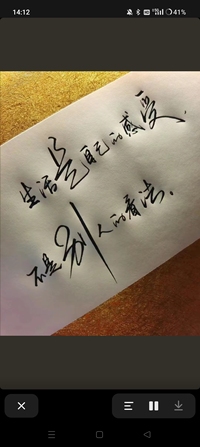 14:12
41%
生活是自己的感受，
不是别人的看法。